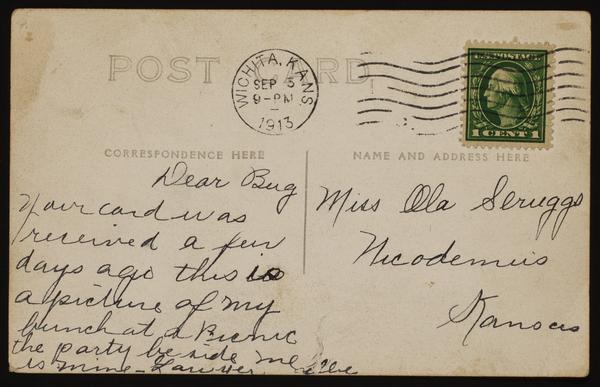 POST CARD
WICHITA, KANS
SEP 5
9-PM
1913
U.S. POSTAGE
1 CENT 1
CORRESPONDENCE HERE
NAME AND ADDRESS HERE
Dear Bug
Your card was
received a few
days ago this is
a picture of my
bunch at a Picnic
the party beside me
is mine
Miss Ola Scruggs
Nicodemus
Kansas